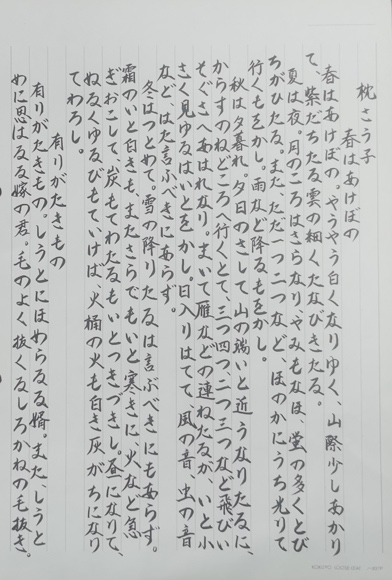 枕さう子
春はあけぼの
春はあけぼの。やうやう白くなりゆく、山際少しあかり
て、紫だちたる雲の細くたなびきたる。
夏は夜。月のころはさらなり、やみもなほ、蛍の多くとび
ちがひたる。また、ただ一つ二つなど、ほのかにうち光りて
行くもをかし。雨など降るもをかし。
秋は夕暮れ。夕日のさして山の端いと近うなりたるに、
からすのねどころへ行くとて、三つ四つ、二つ三つなど飛びい
そぐさへあはれなり。まいて雁などの連ねたるが、いと小
さく見ゆるはいとをかし。日入りはてて、風の音、虫の音
など、はた言ふべきにあらず。
冬はつとめて。雪の降りたるは言ふべきにもあらず。
霜のいと白きも、またさらでもいと寒きに、火など急
ぎおこして、炭もてわたるもいとつきづきし。昼になりて、
ぬるくゆるびもていけば、火桶の火も白き灰がちになり
てわろし。
有りがたきもの
有りがたきもの。しうとにほめらるる婿。また、しうと
めに思はるる嫁の君。毛のよく抜くるしろかねの毛抜き。